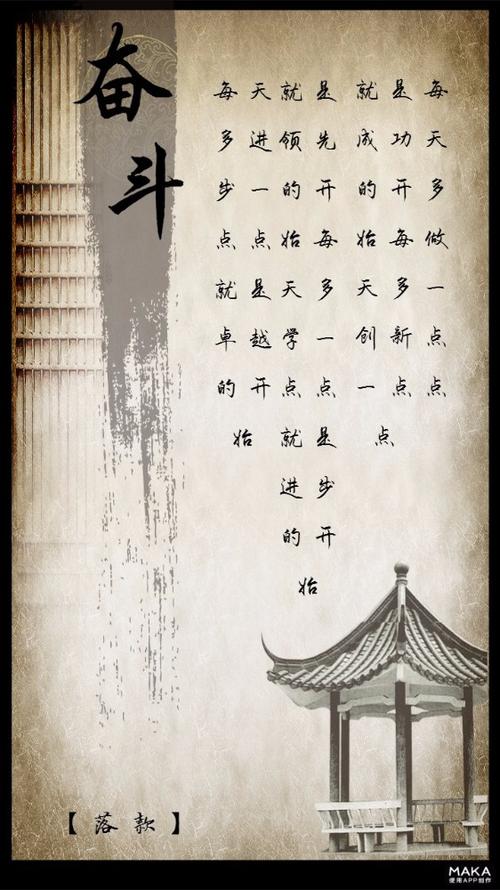 奋
斗
每
天
多
做
一
点
点
就是
成功
的开
始每
天多
创新
一点
点
就是
领先
的开
始每
天多
学一
点点
就是
进步
的开
始
每天
多进
步一
点点
就是
卓越
的开
始
【落款】
MAKA
使用APP创作